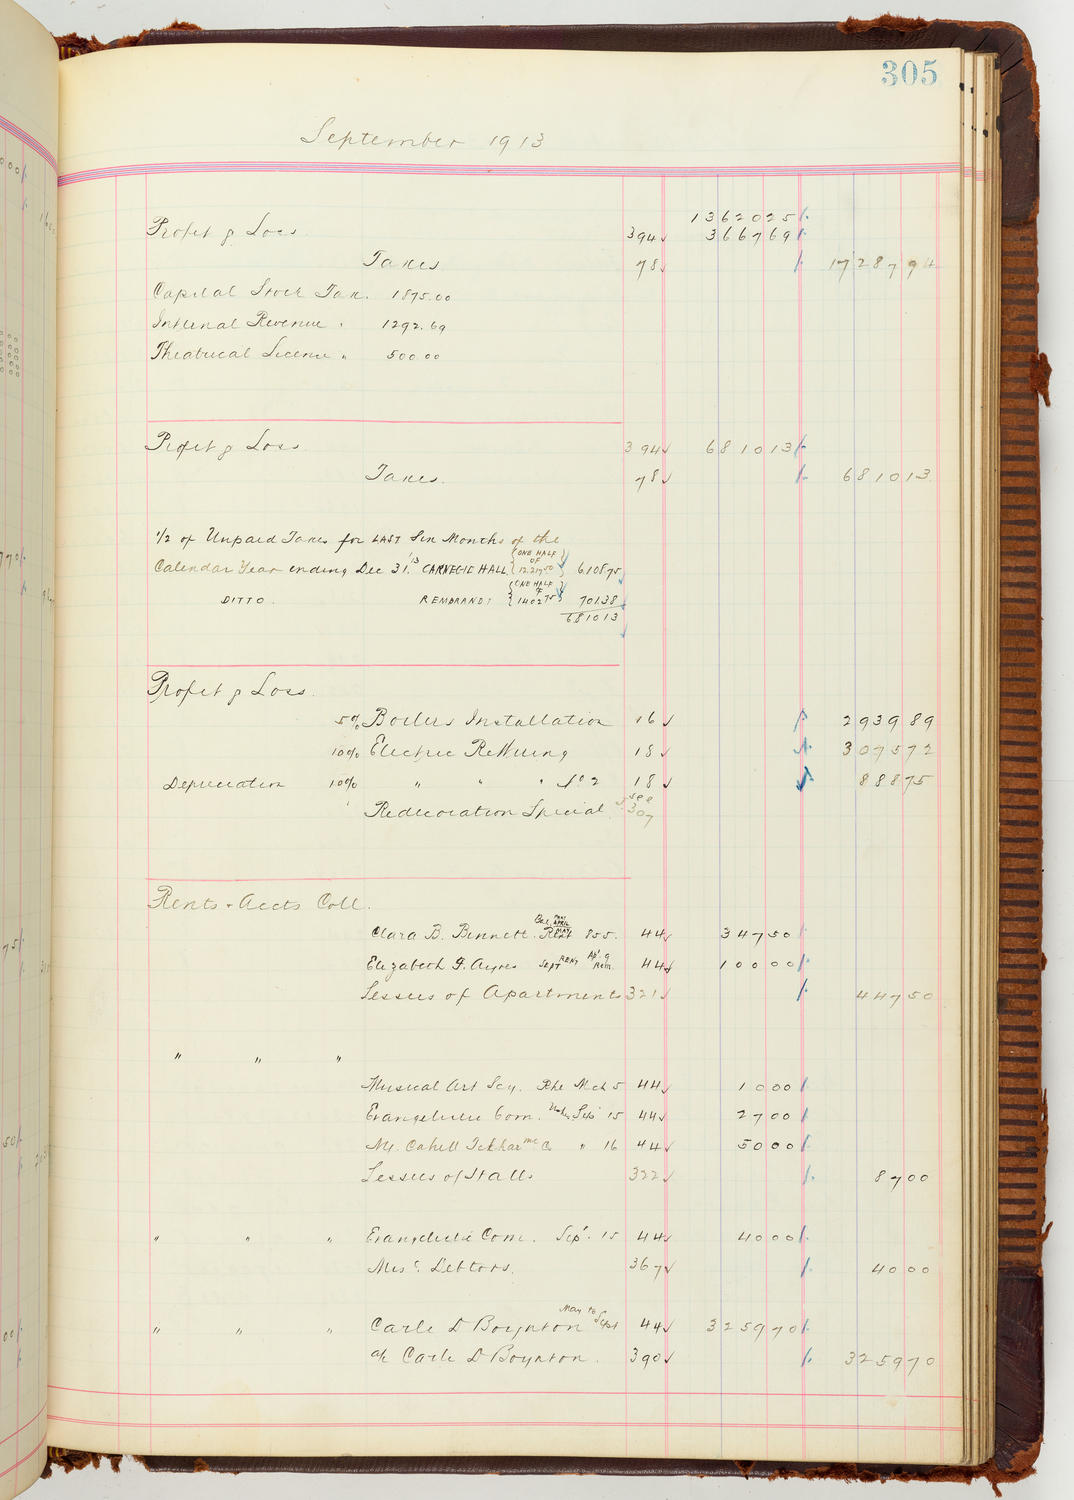 305
September 1913
1362025
Profit & Loss 394 366769
Taxes 78 1728794
Capital Stock Tax. 1875.00
Internal Revenue " 1292.69
Theatrical License " 500.00
Profit & Loss 394 681013
Taxes. 78 681013
1/2 of Unpaid Taxes for LAST Six Months of the
Calendar Year ending Dec 31. '13 CARNEGIE HALL {ONE HALF OF 12217 50} 6108 75
DITTO. REMBRANDT {ONE HALF OF 1402 75} 701.38
681013
Profit & Loss.
5% Boilers Installation 16 293989
10% Electric ReWiring 18 307572
Depreciation 10% " " " No 2 18 88875
Redecoration Special 307
Rents - Accts Coll.
Clara B. Bennett. Bal. Rent APRIL MAY 855. 44 34750
Elizabeth F. Ayres Sept RENT Rem. 44 10000
Lessees of Apartments 321 44750
" " "
Musical Art Socy. Rhe Mch 5 44 1000
Evangelistic Com. Sep 15 44 2700
" 16 44 5000
Lessees of Halls 322 8700
" " " Evangelistic Com. Sep. 15 44 4000
Misc. Debtors. 367 4000
" " " Carle D Boynton May to Sept 44 325970
a/c Carle D Boynton. 390 325970